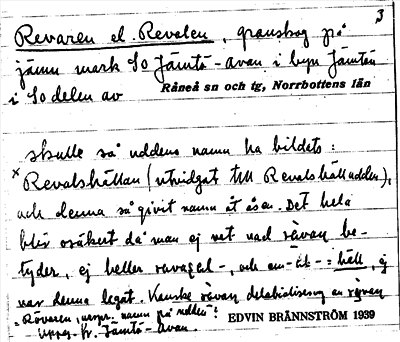 3
Revaren el. Revalen, granskog på
jämn mark SO Jämtö-avan i byn Jämtön
i SO delen av Råneå sn och tg, Norrbottens län
skulle så uddens namn ha bildats:
× Revalshällan (utvidgat till Revalshälludden),
och denna så givit namn åt åsen. Det hela
blir osäkert då man ej vet vad rävan be-
tyder, ej heller ravagal-, och om - = häll, ej
var denna legat. Kanske rävan delabialisering av rövan
Rövaren, urspr. namn på udden?
Uppg. fr. Jämtö-avan. EDVIN BRÄNNSTRÖM 1939